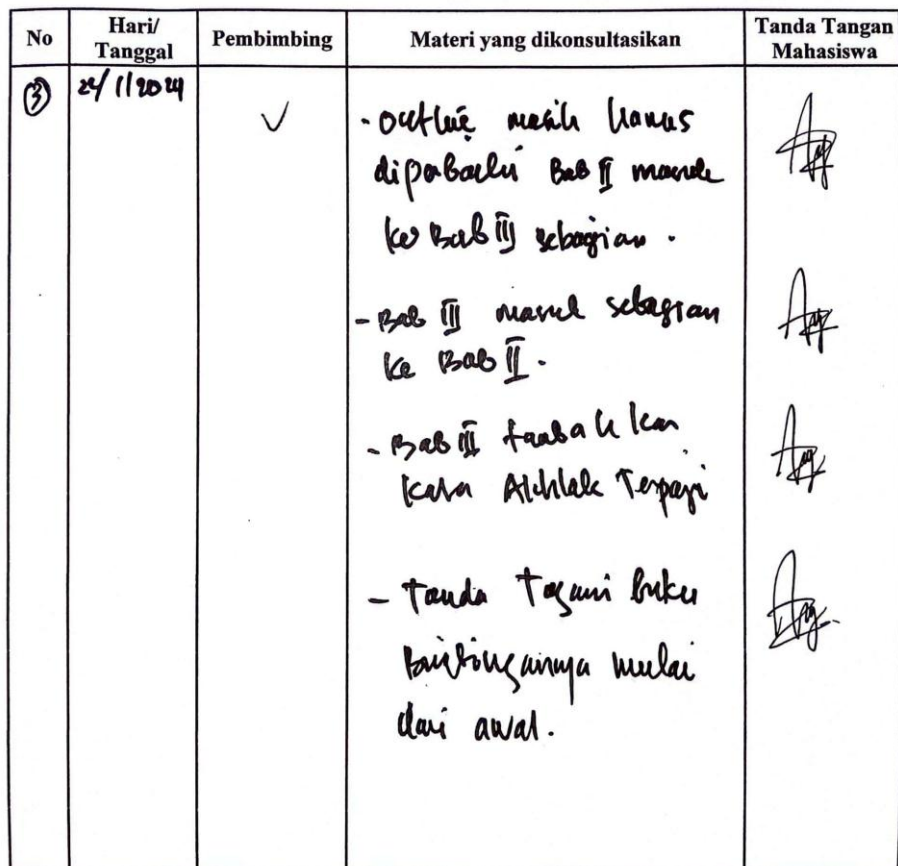 No
Hari/
Tanggal
Pembimbing
Materi yang dikonsultasikan
Tanda Tangan
Mahasiswa
③
24/1/2024
- outline masih harus
diperbaiki Bab II masuk
ke Bab III sebagian.
- Bab III masuk sebagian
ke Bab II.
- Bab III tambahkan
kata Akhlak Terpuji
- Tanda Tangani buku
Bimbingannya mulai
dari awal.